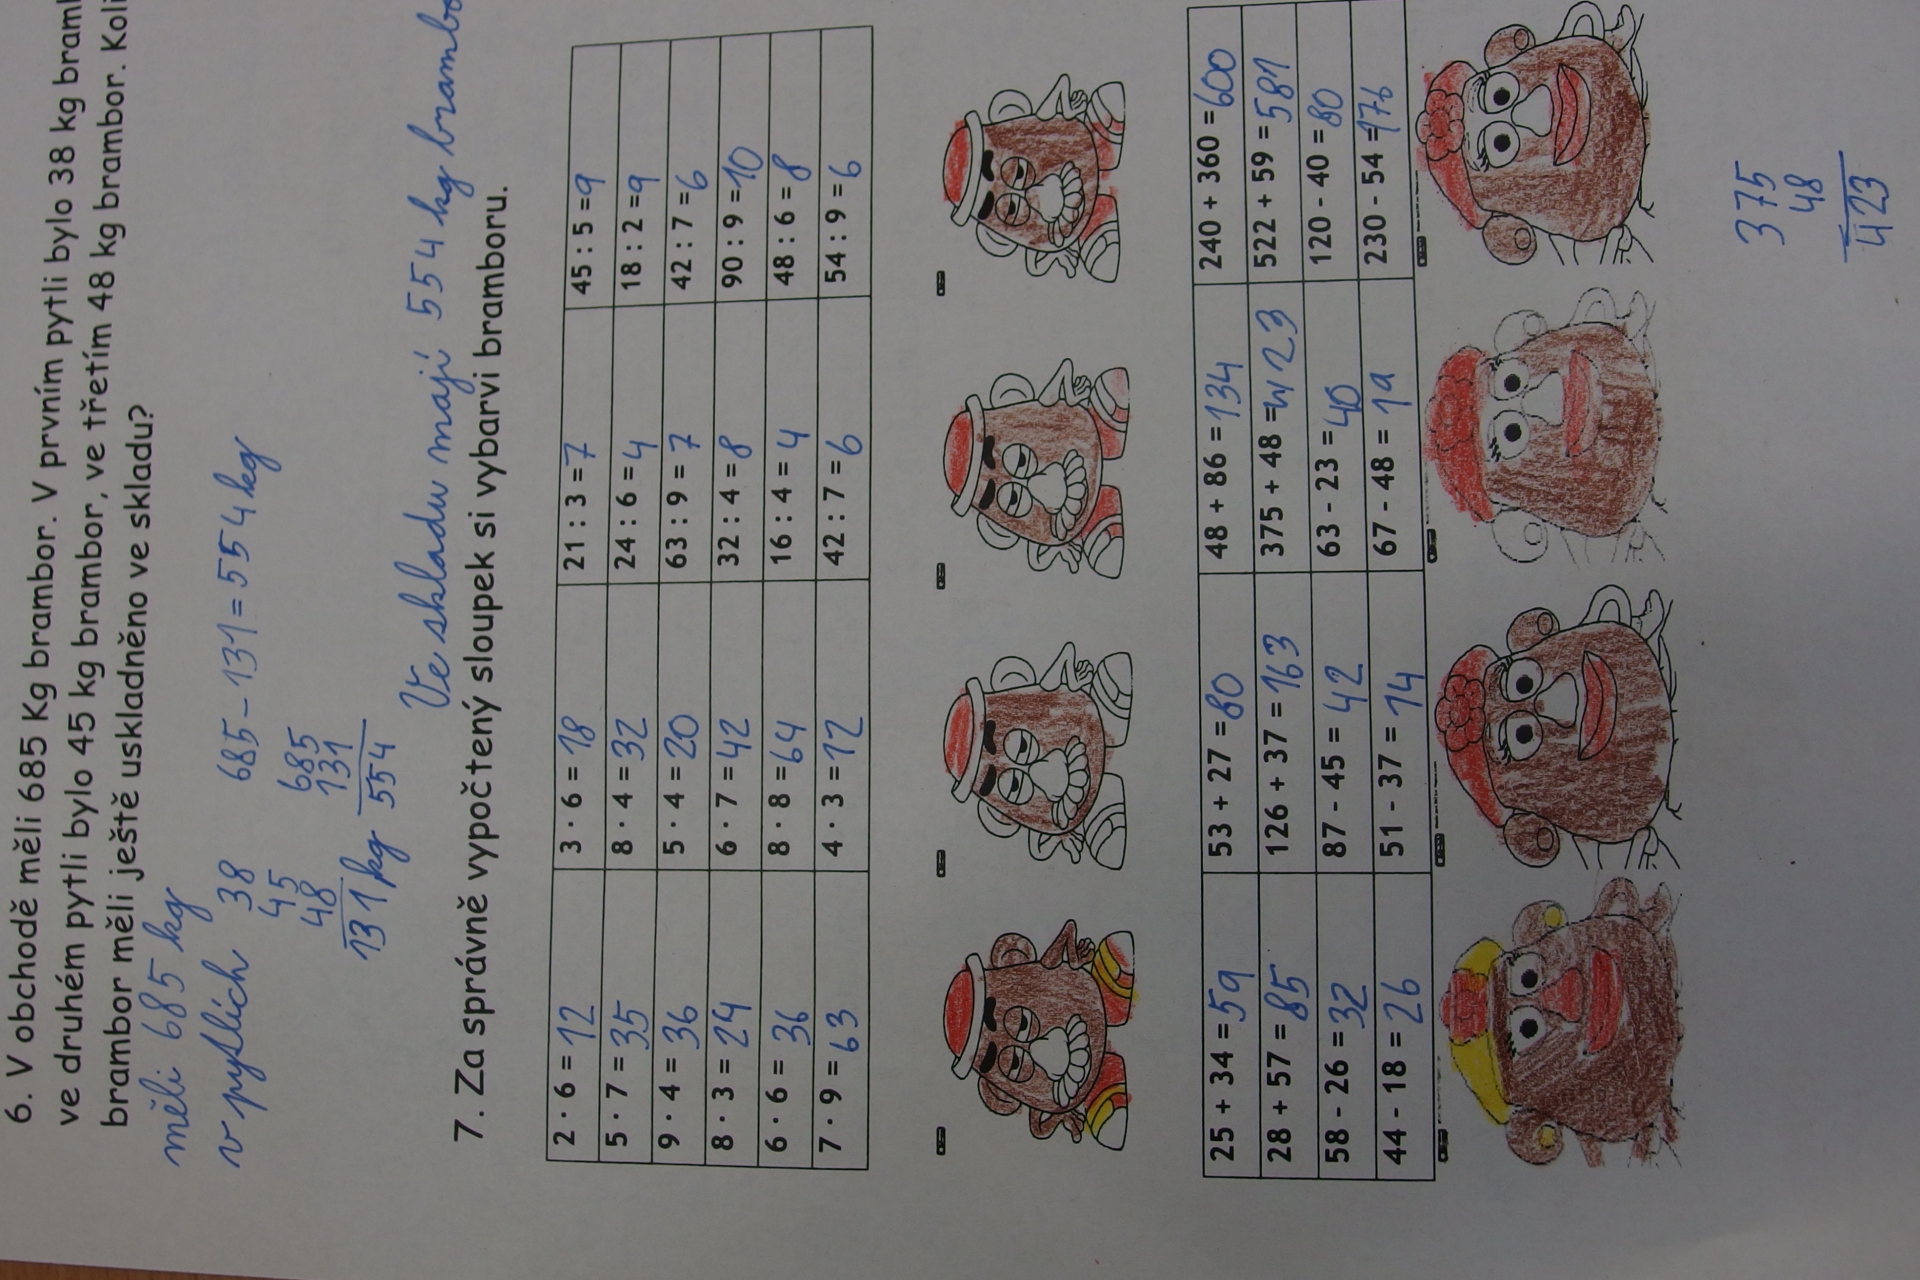 6. V obchodě měli 685 Kg brambor. V prvním pytli bylo 38 kg
ve druhém pytli bylo 45 kg brambor, ve třetím 48 kg brambor.
brambor měli ještě uskladněno ve skladu?
měli 685 kg
v pytlích 38
45
48
131 kg
685 - 131 = 554 kg
685
131
554
Ve skladu mají 554 kg
7. Za správně vypočtený sloupek si vybarvi bramboru.
2 · 6 = 12 3 · 6 = 18 21 : 3 = 7 45 : 5 = 9
5 · 7 = 35 8 · 4 = 32 24 : 6 = 4 18 : 2 = 9
9 · 4 = 36 5 · 4 = 20 63 : 9 = 7 42 : 7 = 6
8 · 3 = 24 6 · 7 = 42 32 : 4 = 8 90 : 9 = 10
6 · 6 = 36 8 · 8 = 64 16 : 4 = 4 48 : 6 = 8
7 · 9 = 63 4 · 3 = 12 42 : 7 = 6 54 : 9 = 6
25 + 34 = 59 53 + 27 = 80 48 + 86 = 134 240 + 360 = 600
28 + 57 = 85 126 + 37 = 163 375 + 48 = 423 522 + 59 = 581
58 - 26 = 32 87 - 45 = 42 63 - 23 = 40 120 - 40 = 80
44 - 18 = 26 51 - 37 = 14 67 - 48 = 19 230 - 54 = 176
375
48
423